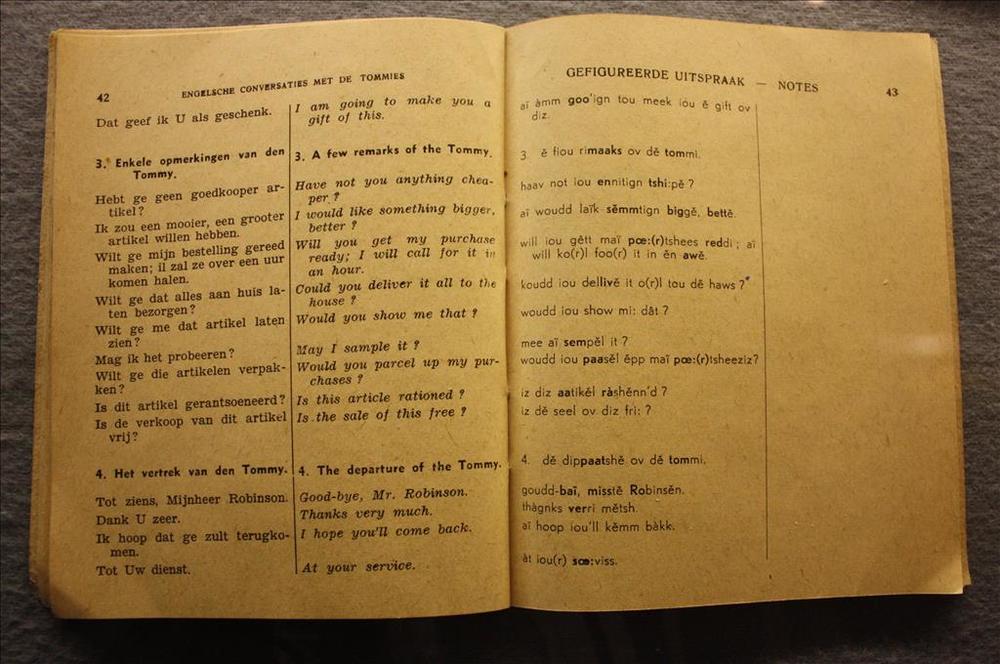 42
ENGELSCHE CONVERSATIES MET DE TOMMIES
Dat geef ik U als geschenk.
3. Enkele opmerkingen van den
Tommy.
Hebt ge geen goedkooper ar-
tikel?
Ik zou een mooier, een grooter
artikel willen hebben.
Wilt ge mijn bestelling gereed
maken; il zal ze over een uur
komen halen.
Wilt ge dat alles aan huis la-
ten bezorgen?
Wilt ge me dat artikel laten
zien?
Mag ik het probeeren?
Wilt ge die artikelen verpak-
ken?
Is dit artikel gerantsoeneerd?
Is de verkoop van dit artikel
vrij?
4. Het vertrek van den Tommy.
Tot ziens, Mijnheer Robinson.
Dank U zeer.
Ik hoop dat ge zult terugko-
men.
Tot Uw dienst.
I am going to make you a
gift of this.
3. A few remarks of the Tommy.
Have not you anything chea-
per ?
I would like something bigger,
better ?
Will you get my purchase
ready; I will call for it in
an hour.
Could you deliver it all to the
house ?
Would you show me that ?
May I sample it ?
Would you parcel up my pur-
chases ?
Is this article rationed ?
Is the sale of this free ?
4. The departure of the Tommy.
Good-bye, Mr. Robinson.
Thanks very much.
I hope you'll come back.
At your service.
GEFIGUREERDE UITSPRAAK — NOTES
43
aï àmm goo'ign tou meek iou ě gift ov
diz.
3 ě fiou rimaaks ov dě tommi.
haav not iou ennitign tshi:pě ?
aï woudd laïk sěmmtign biggě, bettě.
will iou gětt maï pœ:(r)tshees reddi ; aï
will ko(r)l foo(r) it in ěn awě.
koudd iou dellivě it o(r)l tou dě haws ?
woudd iou show mi: dàt ?
mee aï sempěl it ?
woudd iou paasěl ěpp maï pœ:(r)tsheeziz?
iz diz aatikěl ràshěnn'd ?
iz dě seel ov diz fri: ?
4. dě dippaatshě ov dě tommi.
goudd-baï, misstě Robinsěn.
thàgnks verri mětsh.
aï hoop iou'll kěmm bàkk.
àt iou(r) sœ:viss.